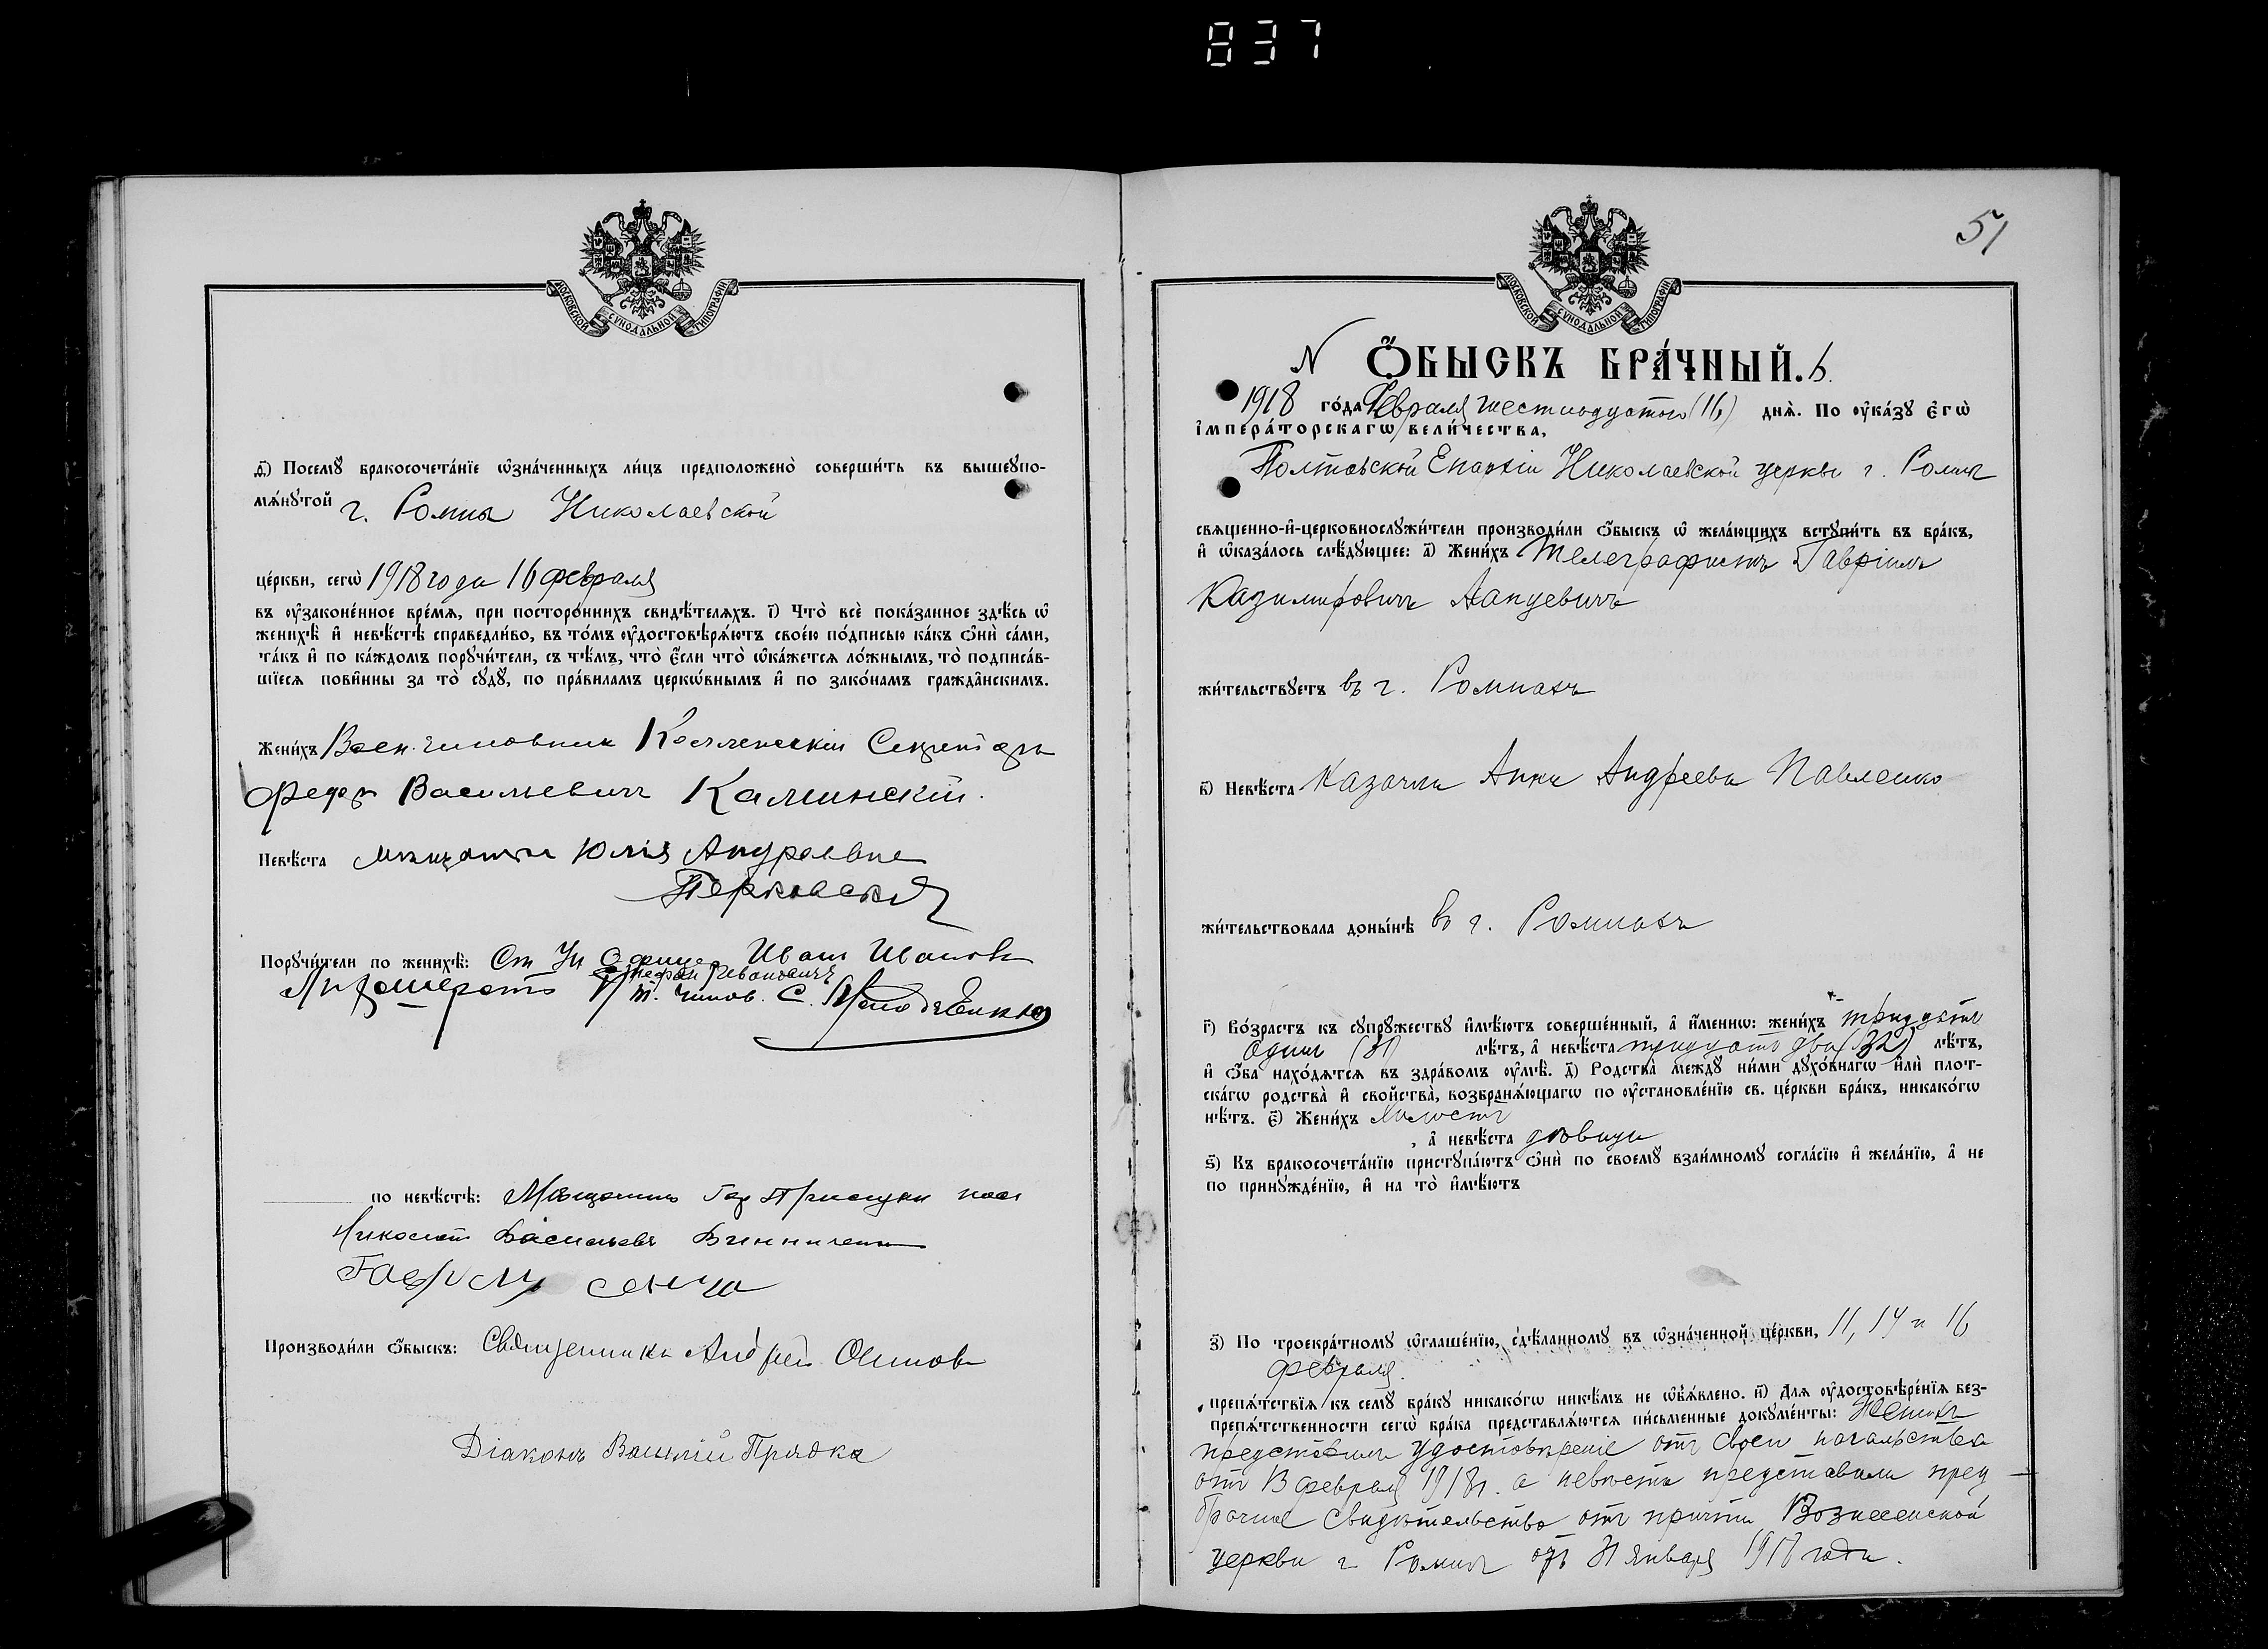 837
МОСКОВСКОЙ СѴНОДАЛЬНОЙ ТИПОГРАФІИ
д҃) Посемꙋ̀ бракосочета́нїе ѡ҆зна́ченныхъ ли́цъ предположено̀ соверши́ть въ вышеꙋпо-
мѧ́нꙋтой г. Ромна Николаевской
це́ркви, сегѡ̀ 1918 года 16 февраля
въ оу҆законе́нное вре́мѧ, при посторо́ннихъ свидѣ́телѧхъ. і҃) Что̀ всѐ пока́занное здѣ́сь ѡ҆
женихѣ̀ и҆ невѣ́стѣ справедли́во, въ то́мъ оу҆достовѣрѧ́ютъ свое́ю по́дписью ка́къ ѻ҆нѝ са́ми,
та́къ и҆ по ка́ждомъ порꙋчи́тели, съ тѣ́мъ, что̀ є҆́сли что̀ ѡ҆ка́жетсѧ ло́жнымъ, то̀ подписа́в-
шїесѧ пови́нны за то̀ сꙋдꙋ̀, по пра́виламъ церко́внымъ и҆ по зако́намъ гражда́нскимъ.
Жени́хъ Воен. чиновник Коллежскій Секретарь
Федор Васильевич Каминскій.
Невѣ́ста мѣщанка Юлія Андреевна
Перковская
Порꙋчи́тели по женихѣ̀: Ст Ун Офицер Иван Иванов
Стефан Иванович
чинов. С.
по невѣ́стѣ: Мѣщанин
Николай Васильевъ Винниченко
Производи́ли ѻ҆́быскъ: Священникъ Андрей Осипов
Діаконъ Василій Прядка
51
МОСКОВСКОЙ СѴНОДАЛЬНОЙ ТИПОГРАФІИ
N Ѻ҆́БЫСКЪ БРА́ЧНЫЙ. 6.
1918 го́да Февраля шестнадцатого (16) днѧ̀. По оу҆ка́зꙋ Є҆гѡ̀
і҆мпера́торскагѡ вели́чества,
Полтавской Епархіи Николаевской церкви г. Ромна
священно-и҆-церковнослꙋжи́тели производи́ли ѻ҆́быскъ ѡ҆ жела́ющихъ встꙋпи́ть въ бра́къ,
и҆ ѡ҆каза́лось слѣ́дꙋющее: а҃) Жени́хъ Телеграфистъ Гавріилъ
Казимірович Лапцевичъ
жи́тельствꙋетъ въ г. Ромнахъ
в҃) Невѣ́ста Казачка Анна Андреева Павленко
жи́тельствовала доны́нѣ въ г. Ромнахъ
г҃) Во́зрастъ къ сꙋпрꙋ́жествꙋ и҆мѣ́ютъ соверше́нный, а҆ и҆́менно: жени́хъ тридцать
один (31) лѣ́тъ, а҆ невѣ́ста тридцать два (32) лѣ́тъ,
и҆ ѻ҆́ба нахо́дѧтсѧ въ здра́вомъ оу҆мѣ̀. д҃) Родства̀ междꙋ̀ ни́ми дꙋхо́внагѡ и҆лѝ плот-
ска́гѡ родства̀ и҆ сво́йства, возбранѧ́ющагѡ по оу҆становле́нїю св. це́ркви бра́къ, никако́гѡ
нѣ́тъ. є҃) Жени́хъ холостъ
, а҆ невѣ́ста дѣвица
ѕ҃) Къ бракосочета́нїю пристꙋпа́ютъ ѻ҆нѝ по своемꙋ̀ взаи́мномꙋ согла́сїю и҆ жела́нїю, а҆ не
по принꙋжде́нїю, и҆ на то̀ и҆мѣ́ютъ
з҃) По троекра́тномꙋ ѡ҆глаше́нїю, сдѣ́ланномꙋ въ ѡ҆зна́ченной це́ркви, 11, 14 и 16
февраля.
препѧ́тствїѧ къ семꙋ̀ бра́кꙋ никако́гѡ никѣ́мъ не ѡ҆б̾ѧ́влено. и҃) Длѧ оу҆достовѣре́нїѧ без-
препѧ́тственности сегѡ̀ бра́ка представлѧ́ютсѧ пи́сьменные докꙋме́нты: Жених
представил удостовѣреніе от своего начальства
от 13 февраля 1918 г. а невѣста представила пред-
брачное свидѣтельство от причта Вознесенской
церкви г Ромна от 31 января 1918 года.